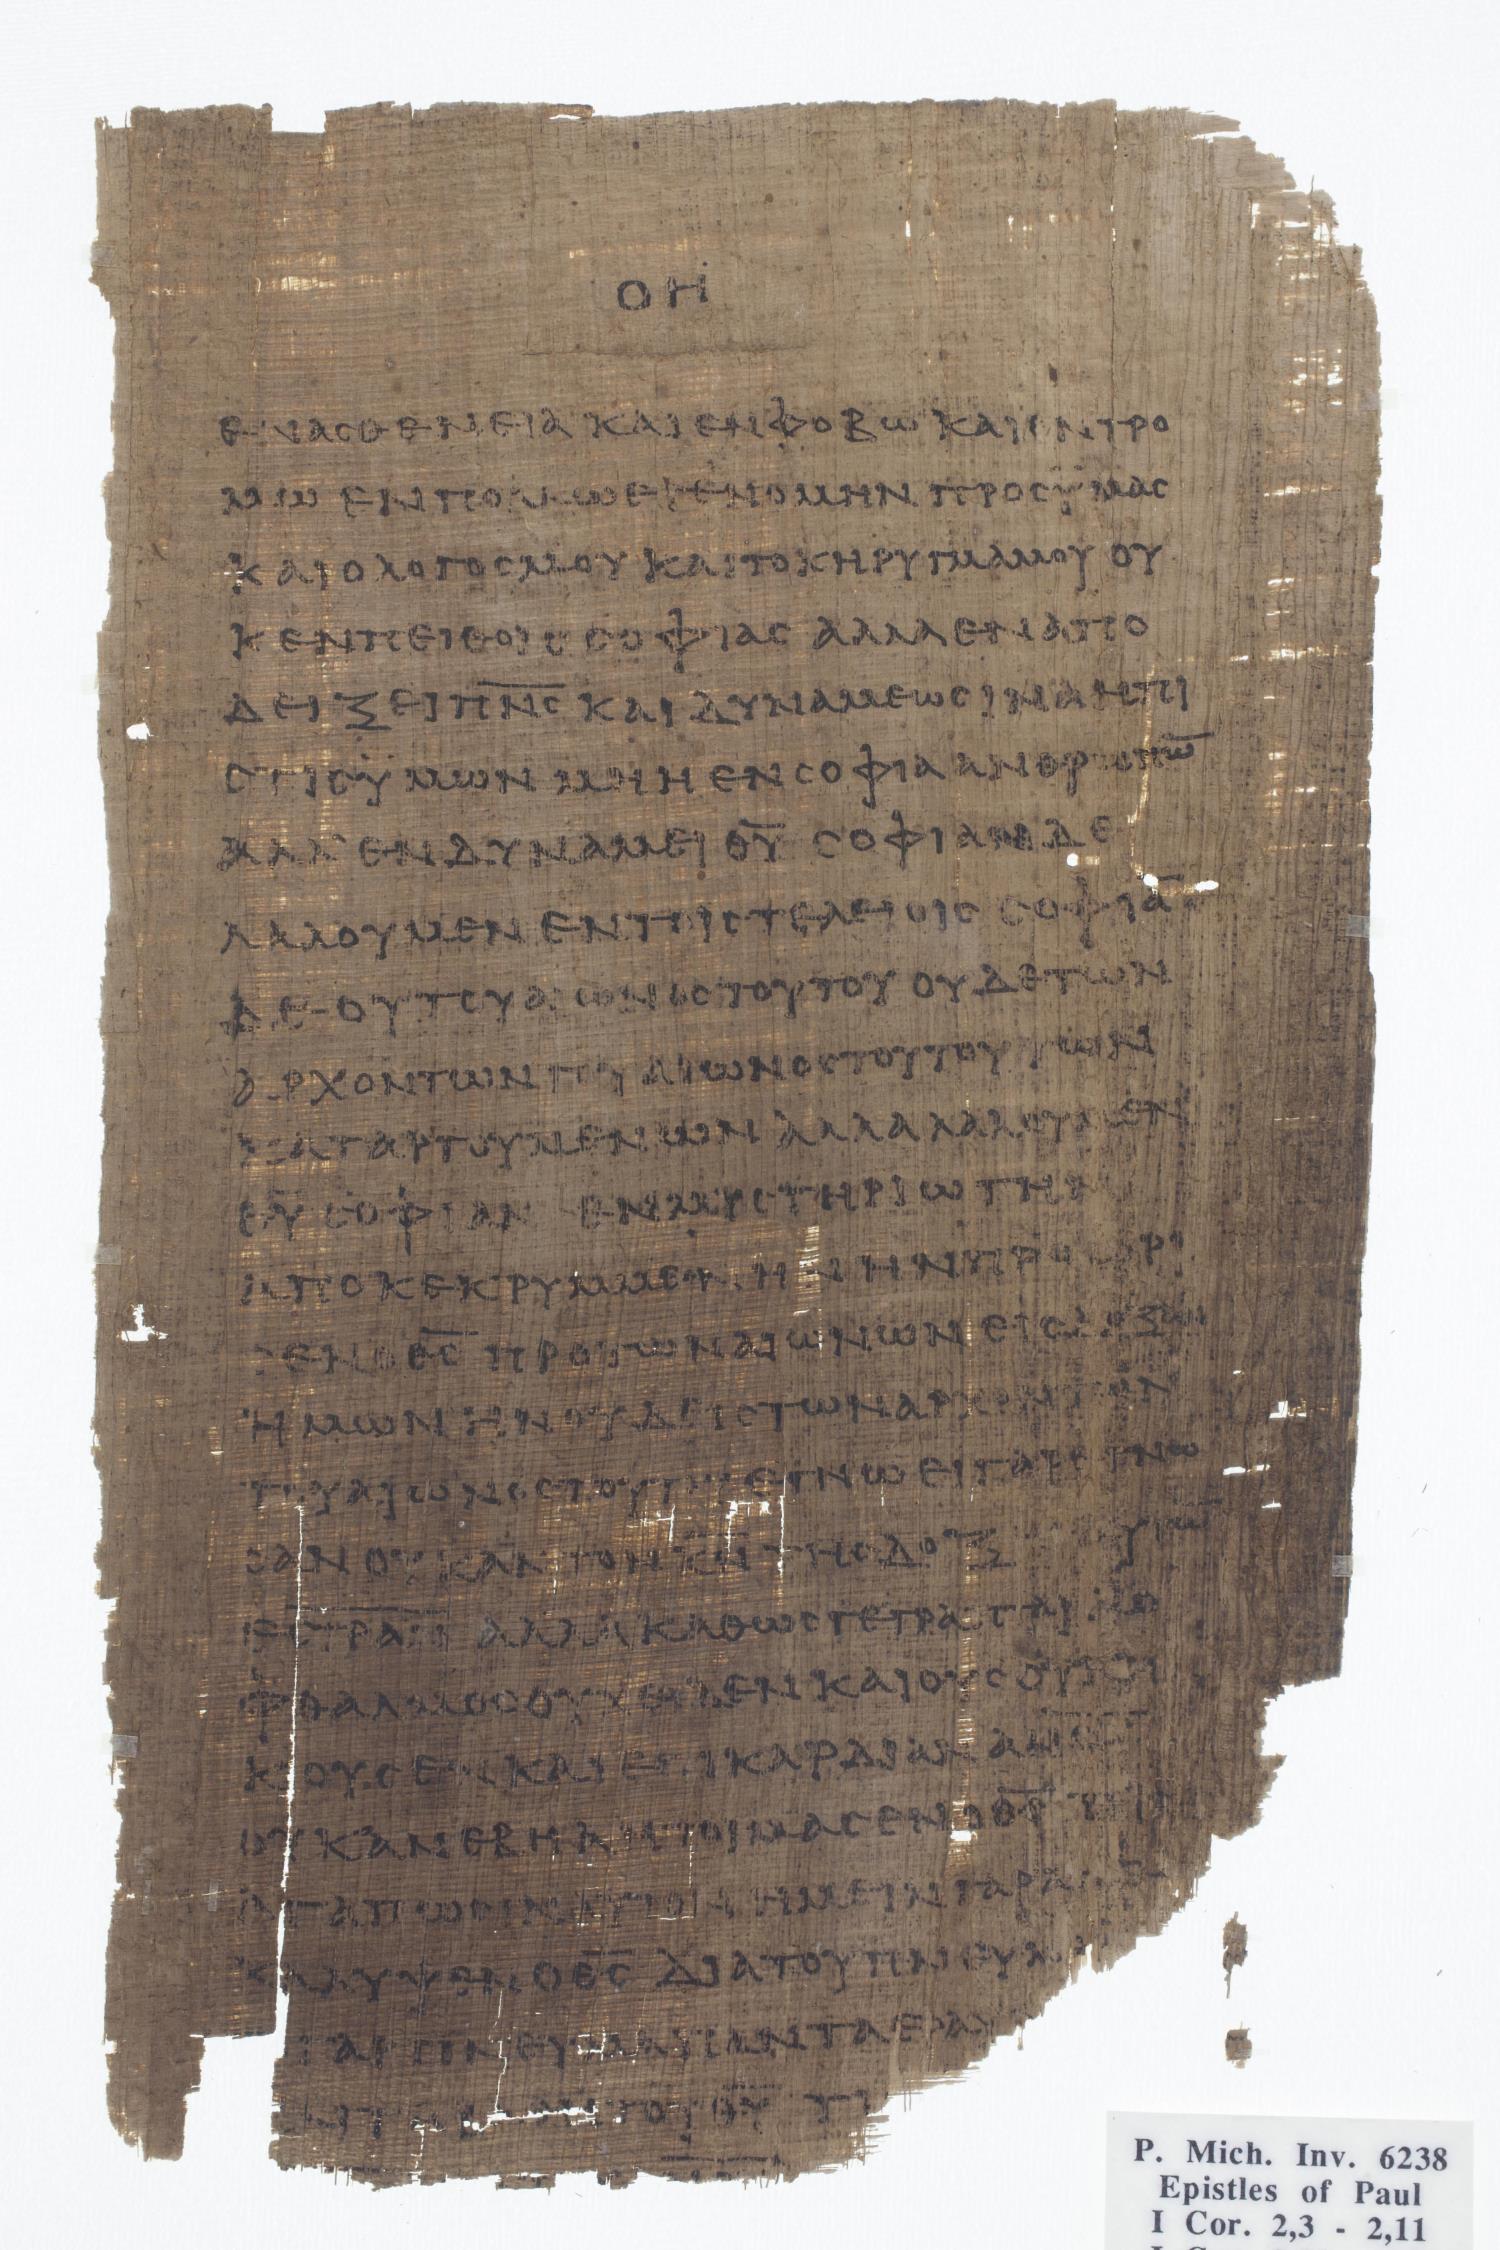 ΟΗ
ΕΝ ΑΣΘΕΝΕΙΑ ΚΑΙ ΕΝ ΦΟΒΩ ΚΑΙ ΕΝ ΤΡΟ
ΜΩ ΕΝ ΠΟΛΛΩ ΕΓΕΝΟΜΗΝ ΠΡΟΣ ΫΜΑΣ
ΚΑΙ Ο ΛΟΓΟΣ ΜΟΥ ΚΑΙ ΤΟ ΚΗΡΥΓΜΑ ΜΟΥ ΟΥ
Κ ΕΝ ΠΕΙΘΟΙΣ ΣΟΦΙΑΣ ΑΛΛΑ ΕΝ ΑΠΟ
ΔΕΙΞΕΙ Π̅Ν̅Σ̅ ΚΑΙ ΔΥΝΑΜΕΩΣ ΙΝΑ Η ΠΙ
ΣΤΙΣ ΫΜΩΝ ΜΗ Η ΕΝ ΣΟΦΙΑ ΑΝΘΡΩΠΩ̅
ΑΛΛ ΕΝ ΔΥΝΑΜΕΙ Θ̅Υ̅ ΣΟΦΙΑΝ ΔΕ
ΛΑΛΟΥΜΕΝ ΕΝ ΤΟΙΣ ΤΕΛΕΙΟΙΣ ΣΟΦΙΑ̅
ΔΕ ΟΥ ΤΟΥ ΑΙΩΝΟΣ ΤΟΥΤΟΥ ΟΥΔΕ ΤΩΝ
ΑΡΧΟΝΤΩΝ ΤΟΥ ΑΙΩΝΟΣ ΤΟΥΤΟΥ ΤΩΝ
ΚΑΤΑΡΓΟΥΜΕΝΩΝ ΑΛΛΑ ΛΑΛΟΥΜΕΝ
Θ̅Υ̅ ΣΟΦΙΑΝ ΕΝ ΜΥΣΤΗΡΙΩ ΤΗΝ
ΑΠΟΚΕΚΡΥΜΜΕΝΗΝ ΗΝ ΠΡΟΩΡΙ
ΣΕΝ Ο Θ̅Σ̅ ΠΡΟ ΤΩΝ ΑΙΩΝΩΝ ΕΙΣ ΔΟΞΑΝ
ΗΜΩΝ ΗΝ ΟΥΔΕΙΣ ΤΩΝ ΑΡΧΟΝΤΩΝ
ΤΟΥ ΑΙΩΝΟΣ ΤΟΥΤΟΥ ΕΓΝΩ ΕΙ ΓΑΡ ΕΓΝΩ
ΣΑΝ ΟΥΚ ΑΝ ΤΟΝ Κ̅Ν̅ ΤΗΣ ΔΟΞ
ΑΛΛΑ ΚΑΘΩΣ ΓΕΓΡΑΠΤΑΙ
ΦΘΑΛΜΟΣ ΟΥΧ ΕΙΔΕΝ ΚΑΙ ΟΥΣ ΟΥΚ
ΚΟΥΣΕΝ ΚΑΙ ΕΠΙ ΚΑΡΔΙΑΝ
ΟΥΚ ΑΝΕΒΗ Α ΗΤΟΙΜΑΣΕΝ Ο Θ̅Σ̅ ΤΟΙΣ
ΑΓΑΠΩΣΙΝ ΑΥΤΟΝ ΗΜΕΙΝ ΓΑΡ
ΚΑΛΥΨΕΝ Ο Θ̅Σ̅ ΔΙΑ ΤΟΥ ΠΝΕΥΜ
ΓΑΡ ΠΝΕΥΜΑ ΠΑΝΤΑ ΕΡΑΥ
ΤΟΥ Θ̅Υ̅ ΤΙ
P. Mich. Inv. 6238
Epistles of Paul
I Cor. 2,3 - 2,11